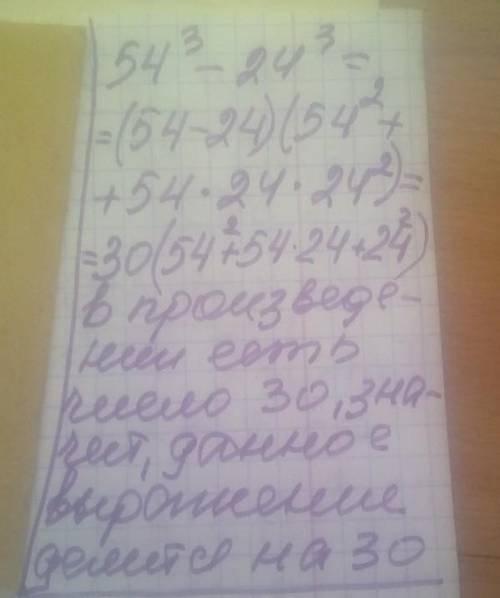 54³ - 24³ =
=(54-24)(54²+
+54·24·24²)=
=30(54²+54·24+24²)
в произведе-
нии есть
число 30, зна-
чит, данное
выражение
делится на 30